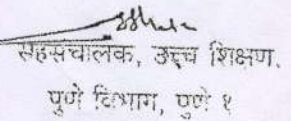 सहसंचालक, उच्च शिक्षण.
पुणे विभाग, पुणे १